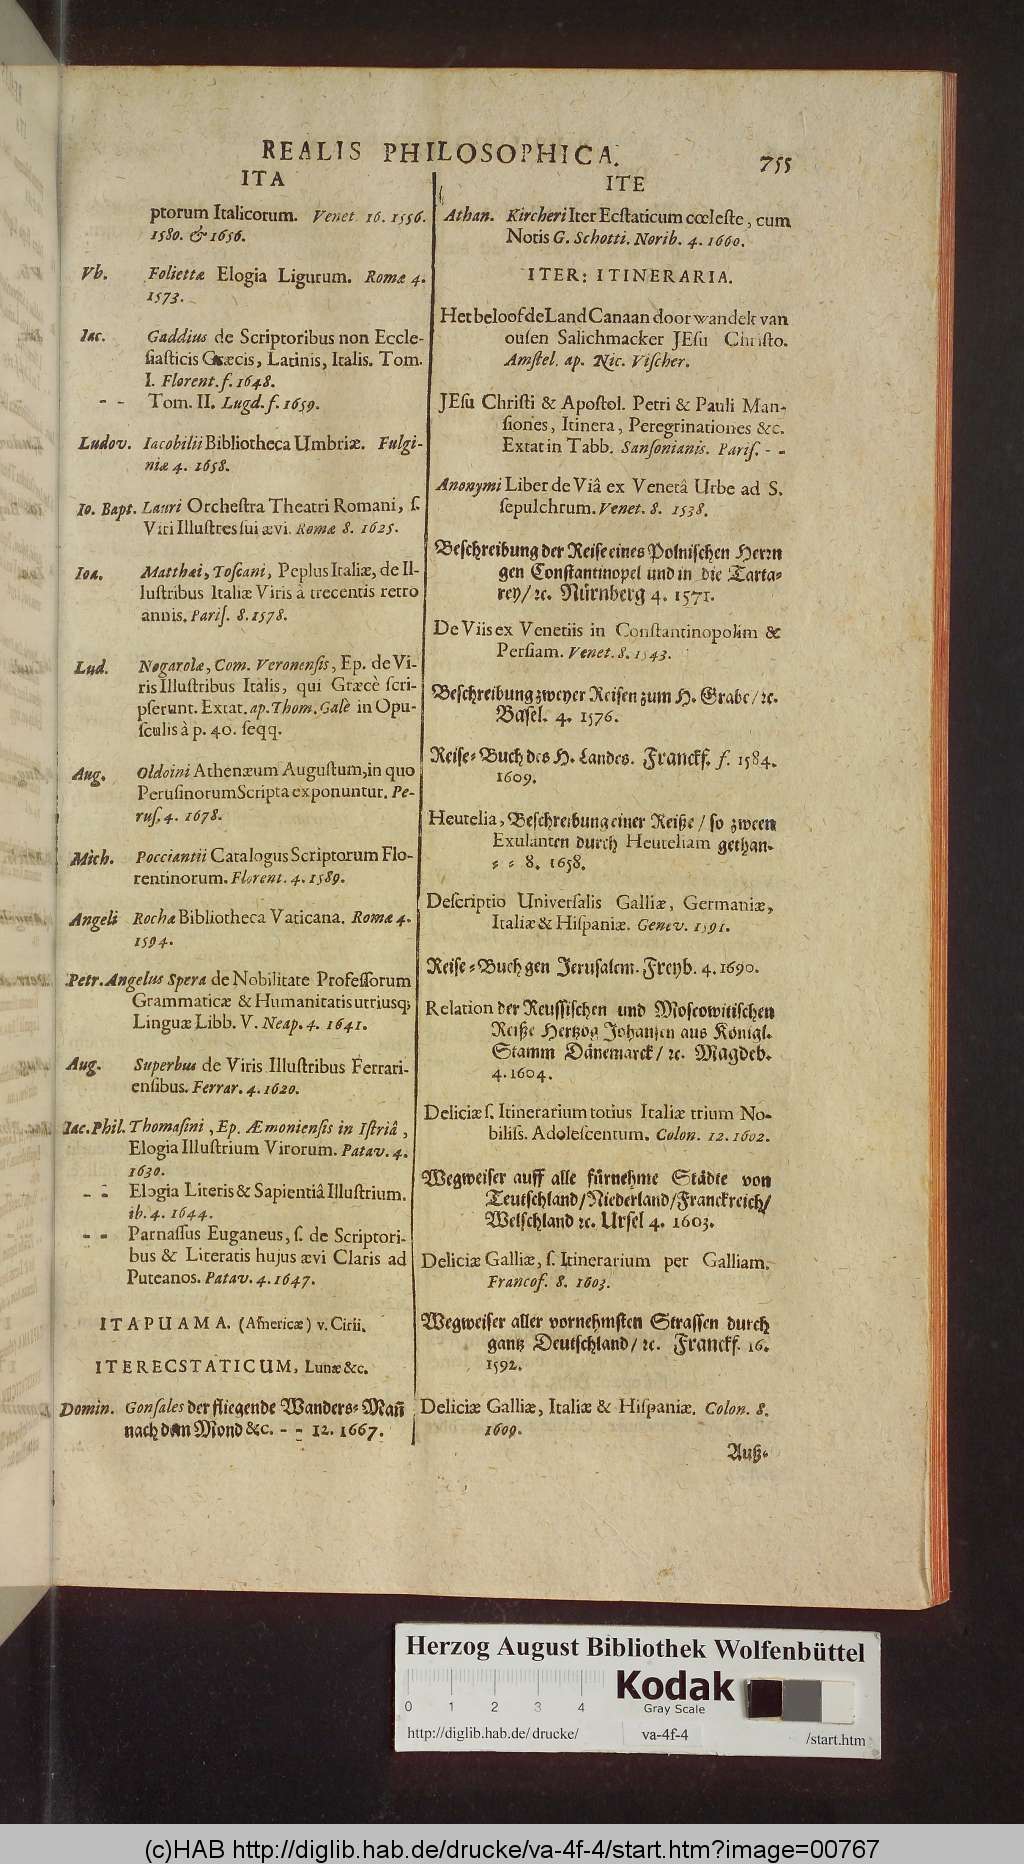 REALIS PHILOSOPHICA. 755
ITA
ptorum Italicorum. Venet. 16. 1556.
1580. & 1656.
Vb. Foliettæ Elogia Ligurum. Romæ 4.
1573.
Iac. Gaddius de Scriptoribus non Eccle-
siasticis Græcis, Latinis, Italis. Tom.
I. Florent. f. 1648.
- - Tom. II. Lugd. f. 1659.
Ludov. Iacobilii Bibliotheca Umbriæ. Fulgi-
niæ 4. 1658.
Io. Bapt. Lauri Orchestra Theatri Romani, s.
Viri Illustres sui ævi. Romæ 8. 1625.
Ioa. Matthæi, Toscani, Peplus Italiæ, de Il-
lustribus Italiæ Viris à trecentis retro
annis. Paris. 8. 1578.
Lud. Nogarolæ, Com. Veronensis, Ep. de Vi-
ris Illustribus Italis, qui Græcè scri-
pserunt. Extat. ap. Thom. Galè in Opu-
sculis à p. 40. seqq.
Aug. Oldoini Athenæum Augustum, in quo
Perusinorum Scripta exponuntur. Pe-
rus. 4. 1678.
Mich. Pocciantii Catalogus Scriptorum Flo-
rentinorum. Florent. 4. 1589.
Angeli Rocha Bibliotheca Vaticana. Romæ 4.
1594.
Petr. Angelus Spera de Nobilitate Professorum
Grammaticæ & Humanitatis utriusq;
Linguæ Libb. V. Neap. 4. 1641.
Aug. Superbus de Viris Illustribus Ferrari-
ensibus. Ferrar. 4. 1620.
Iac. Phil. Thomasini, Ep. Æmoniensis in Istriâ,
Elogia Illustrium Virorum. Patav. 4.
1630.
- - Elogia Literis & Sapientiâ Illustrium.
ib. 4. 1644.
- - Parnassus Euganeus, s. de Scriptori-
bus & Literatis hujus ævi Claris ad
Puteanos. Patav. 4. 1647.
ITAPUAMA. (Americæ) v. Cirii.
ITER ECSTATICUM, Lunæ &c.
Domin. Gonsales der fliegende Wanders-Mañ
nach dem Mond &c. - - 12. 1667.
ITE
Athan. Kircheri Iter Ecstaticum cœleste, cum
Notis G. Schotti. Norib. 4. 1660.
ITER: ITINERARIA.
Het beloofde Land Canaan door wandelt van
ousen Salichmacker JEsu Christo.
Amstel. ap. Nic. Vischer.
JEsu Christi & Apostol. Petri & Pauli Man-
siones, Itinera, Peregrinationes &c.
Extat in Tabb. Sansonianis. Paris. - -
Anonymi Liber de Viâ ex Venetâ Urbe ad S.
sepulchrum. Venet. 8. 1538.
Beschreibung der Reise eines Polnischen Herrn
gen Constantinopel und in die Tarta-
rey/ ꝛc. Nürnberg 4. 1571.
De Viis ex Venetiis in Constantinopolim &
Persiam. Venet. 8. 1543.
Beschreibung zweyer Reisen zum H. Grabe/ ꝛc.
Basel. 4. 1576.
Reise-Buch des H. Landes. Franckf. f. 1584.
1609.
Heutelia, Beschreibung einer Reiße / so zween
Exulanten durch Heuteliam gethan-
- - 8. 1658.
Descriptio Universalis Galliæ, Germaniæ,
Italiæ & Hispaniæ. Genev. 1591.
Reise-Buch gen Jerusalem. Freyb. 4. 1690.
Relation der Reussischen und Moscowitischen
Reiße Hertzog Johansen aus Königl.
Stamm Dänemarck/ ꝛc. Magdeb.
4. 1604.
Deliciæ s. Itinerarium totius Italiæ trium No-
biliss. Adolescentum. Colon. 12. 1602.
Wegweiser auff alle fürnehme Städte von
Teutschland/ Niederland/ Franckreich/
Welschland ꝛc. Ursel 4. 1603.
Deliciæ Galliæ, s. Itinerarium per Galliam.
Francof. 8. 1603.
Wegweiser aller vornehmsten Strassen durch
gantz Deutschland/ ꝛc. Franckf. 16.
1592.
Deliciæ Galliæ, Italiæ & Hispaniæ. Colon. 8.
1609.
Auß-
Herzog August Bibliothek Wolfenbüttel
Kodak
Gray Scale
0 1 2 3 4
http://diglib.hab.de/drucke/ va-4f-4 /start.htm
(c)HAB http://diglib.hab.de/drucke/va-4f-4/start.htm?image=00767